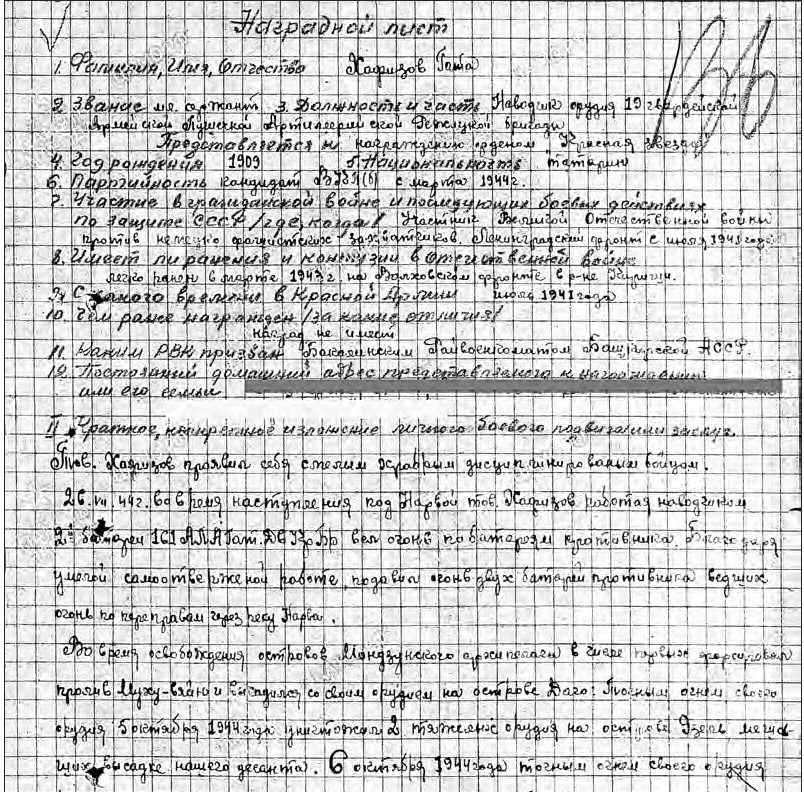 Наградной лист
1. Фамилия, Имя, Отчество Хафизов Гата
2. Звание мл. сержант 3. Должность и часть Наводчик орудия 19 гвардейской
Армейской Пушечной Артиллерийской бригады
Представляется к награждению орденом "Красная звезда"
4. Год рождения 1909 5. Национальность татарин
6. Партийность кандидат ВКП(б) с марта 1944г.
7. Участие в гражданской войне и последующих боевых действиях
по защите СССР /где, когда/ Участник Великой Отечественной войны
против немецко фашистских захватчиков. Ленинградский фронт с июля 1941 года
8. Имеет ли ранения и контузии в отечественной войне
легко ранен в марте 1943г. на Волховском фронте в р-не Киришии.
9. С какого времени в Красной Армии июль 1941 года
10. Чем ранее награжден /за какие отличия/
наград не имеет
11. Каким РВК призван Бакалинским Райвоенкоматом Башкирской АССР.
12. Постоянный домашний адрес представляемого к награждению
или его семьи
II Краткое, конкретное изложение личного боевого подвига или заслуг.
Тов. Хафизов проявил себя смелим храбрым дисциплинированым бойцом.
26.VII.44г. во время наступления под Нарвой тов. Хафизов работая наводчиком
2й батареи 161 АПАП вел огонь по батареям противника. Благодаря
умелой самоотверженой работе, подавил огонь двух батарей противника ведущих
огонь по переправам через реку Нарва.
Во время освобождения островов Мондзунского архипелага в числе первых форсировал
пролив Муху-вяйн и высадился со своим орудием на острове Даго: Точным огнем своего
орудия 5 октября 1944 года уничтожил 2 тяжелых орудия на острове Эзель мешав-
ших высадке нашего десанта. 6 октября 1944 года точным огнем своего орудия